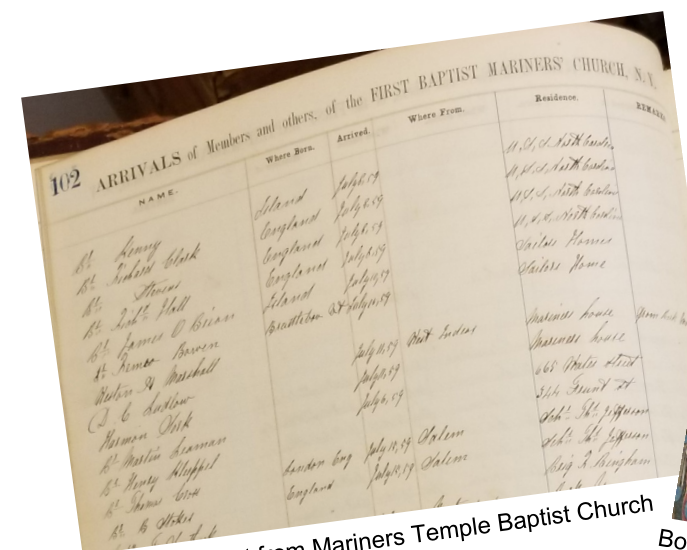 102 ARRIVALS of Members and others, of the FIRST BAPTIST MARINERS' CHURCH, N.Y.
NAME. Where Born. Arrived. Where From. Residence. REMARKS
Br. Kenny Island July 8, 59 U.S.S. North Carolina
Br. Richard Clark England July 8, 59 U.S.S. North Carolina
Br. Stevens England July 8, 59 U.S.S. North Carolina
Br. Richd. Hall England July 8, 59 U.S.S. North Carolina
Br. James O Brion Island July 10, 59 Sailors Home
Bowen July 10, 59 Sailors Home
Weston H Marshall
D. C. Ludlow July 11, 59 West Indies Mariners house
Harmon July 9, 59 Mariners house
Br. Martin Leaman July 6, 59 665 Water street
Br. Henry Kluppel 344 Front St
Br. Thomas Cross London Eng July 12, 59 Salem Schr. Ths. Jefferson
Br. Stokes England July 12, 59 Salem Schr. Ths. Jefferson
Brig Bingham
from Mariners Temple Baptist Church
Bo